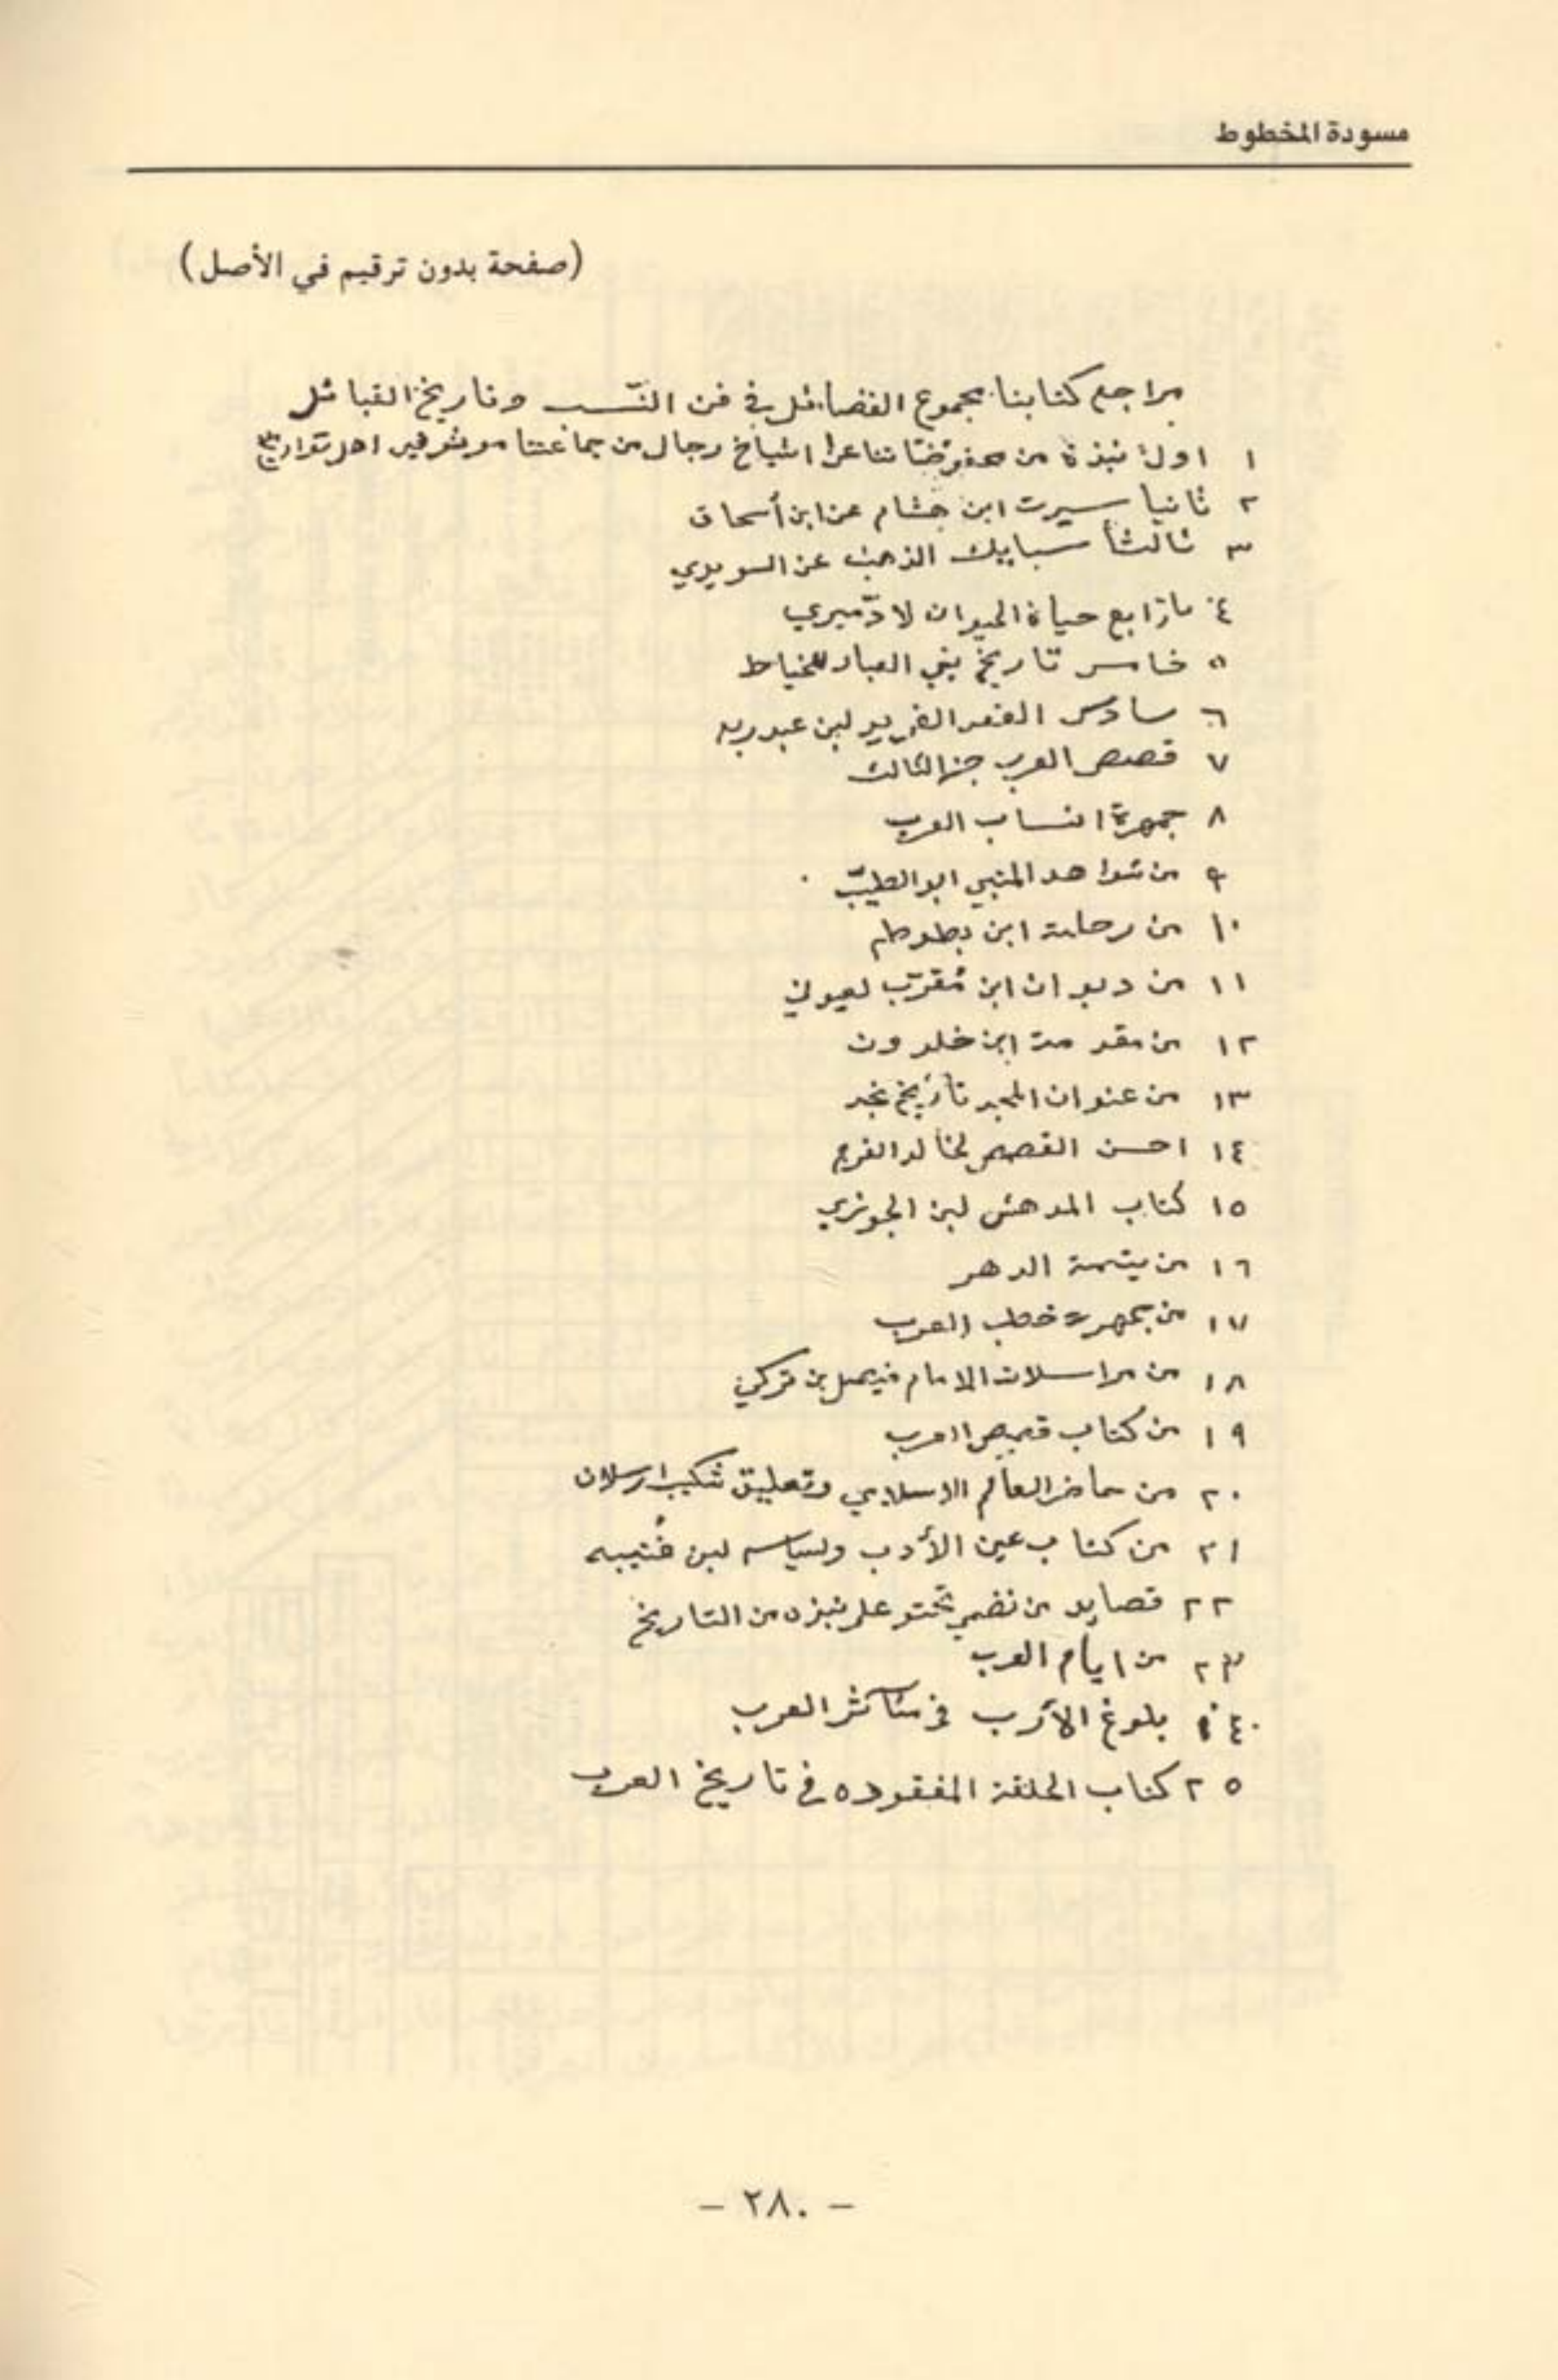 مسودة المخطوط
(صفحة بدون ترقيم في الأصل)
مراجع كتابنا مجموع الفضائل في فن النسب وتاريخ القبائل
١ اولا نبذة من محفوضاتنا عن اشياخ رجال من جماعتنا موثوقين اهل تواريخ
٢ ثانيا سيرت ابن هشام عن ابن أسحاق
٣ ثالثاً سبايك الذهب عن السويدي
٤ رابع حياة الحيوان لادّميري
٥ خامس تاريخ بني العباد للخياط
٦ سادس العقد الفريد لبن عبدربه
٧ قصص العرب جزالثالث
٨ جمهرة انساب العرب
٩ من شواهد المتنبي ابو الطيّب
١٠ من رحلت ابن بطوطه
١١ من ديوان ابن مُقرّب لعيوني
١٢ من مقدمت ابن خلدون
١٣ من عنوان المجد تأريخ نجد
١٤ احسن القصص لخالد الفرج
١٥ كتاب المدهش لبن الجوزي
١٦ من يتيمة الدهر
١٧ من جمهرت خطب العرب
١٨ من مراسلات الامام فيصل بن تركي
١٩ من كتاب قصص العرب
٢٠ من حاضر العالم الاسلامي وتعليق شكيب ارسلان
٢١ من كتاب عين الأدب ولسياسه لبن قُتيبه
٢٢ قصايد من نضمي تحتو على نبزه من التاريخ
٢٣ من ايام العرب
٢٤ بلوغ الأرب في مئآثر العرب
٢٥ كتاب الحلقة المفقوده في تاريخ العرب
– ٢٨٠ –